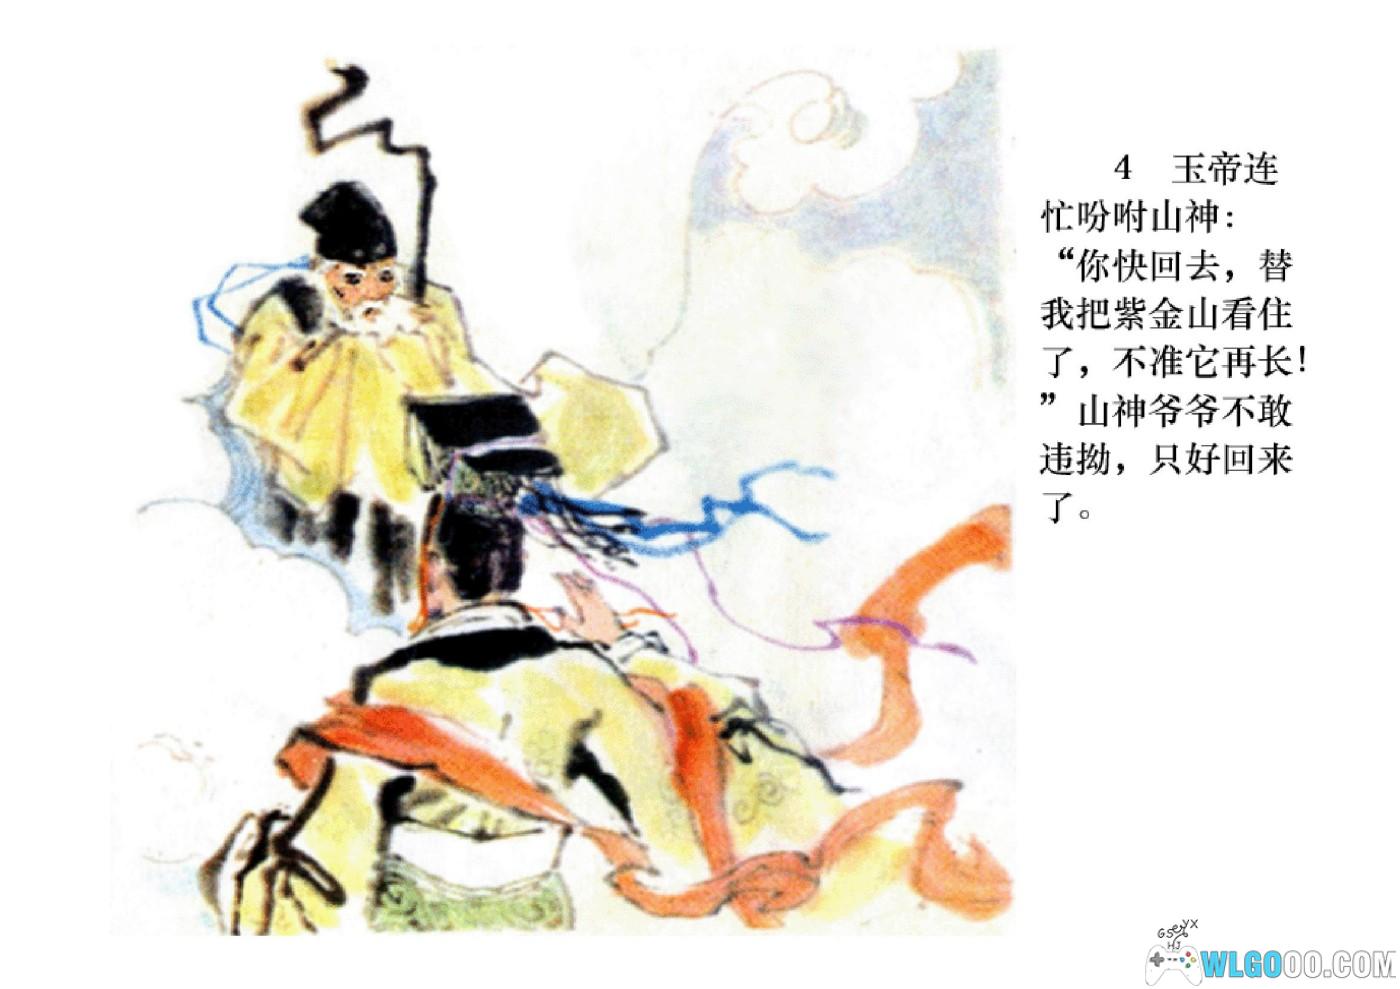 4 玉帝连
忙吩咐山神：
“你快回去，替
我把紫金山看住
了，不准它再长！
”山神爷爷不敢
违拗，只好回来
了。
GSeyx
HJ
WLGOOO.COM